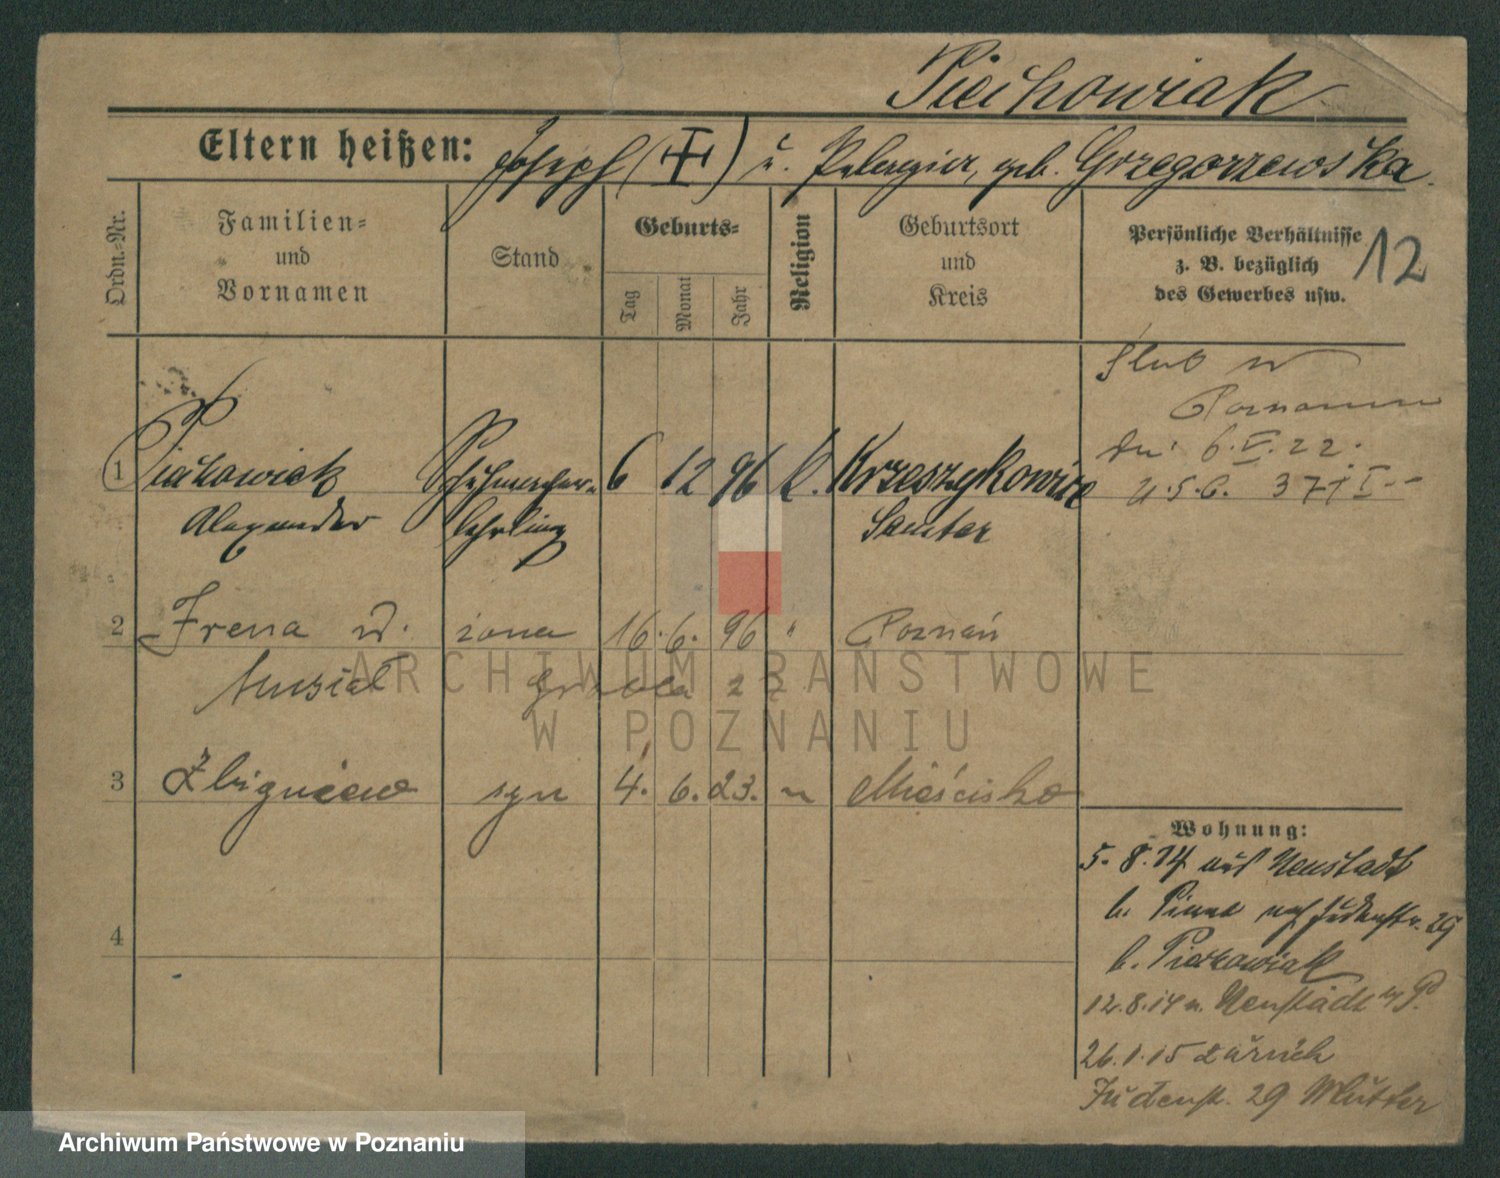 Piechowiak
Eltern heißen: Joseph (†) u. Pelagia, geb. Grzegorzewska.
Ordn.-Nr.
Familien- und Vornamen
Stand
Geburts-
Tag
Monat
Jahr
Religion
Geburtsort und Kreis
Persönliche Verhältnisse
z. B. bezüglich
des Gewerbes usw.
12
Ślub w
Poznaniu
dn. 6.V.22.
1 Piechowiak Schuhmacher- 6 12 96 k. Krzeszykowice
Alexander lehrling Samter
2 Irena ż. żona 16. 6. 96 " Poznań
Musiał
3 Zbigniew syn 4. 6. 23. " Mieścisko
4
Wohnung:
5.8.14 aus Neustadt
b. Pinne nach Judenstr. 29
b. Piechowiak
12.8.14 n. Neustadt b/P.
26.1.15 zurück
Judenstr. 29 Mutter
ARCHIWUM PAŃSTWOWE
W POZNANIU
Archiwum Państwowe w Poznaniu